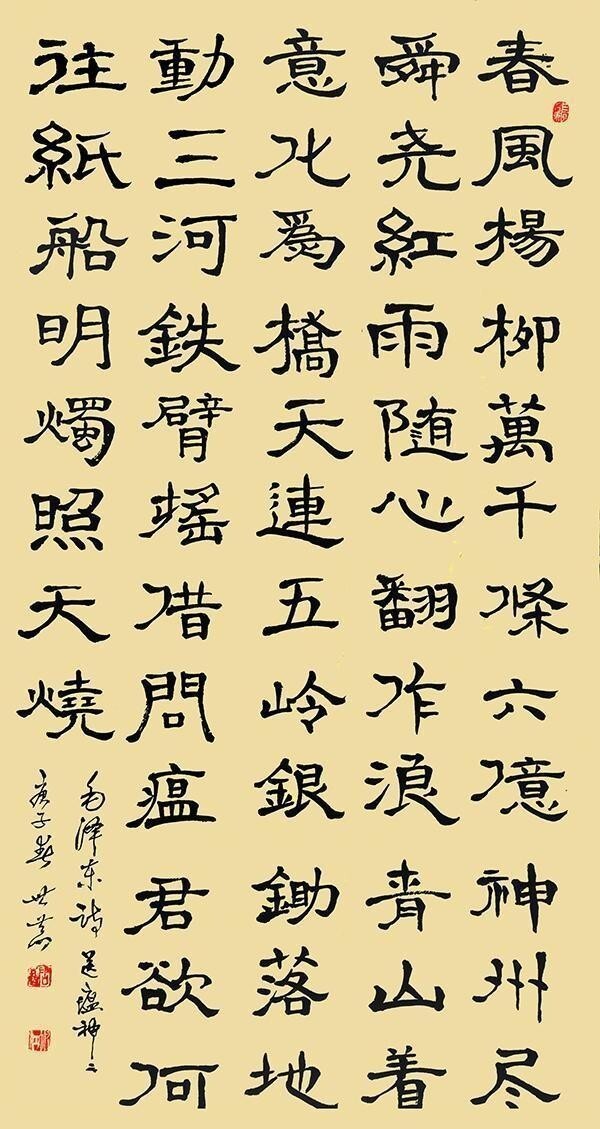 春風楊柳萬千條六億神州尽
舜尧紅雨随心翻作浪青山着
意化爲橋天連五岭銀鋤落地
動三河鉄臂搖借問瘟君欲何
往紙船明燭照天燒
毛泽东诗送瘟神二
庚子春世